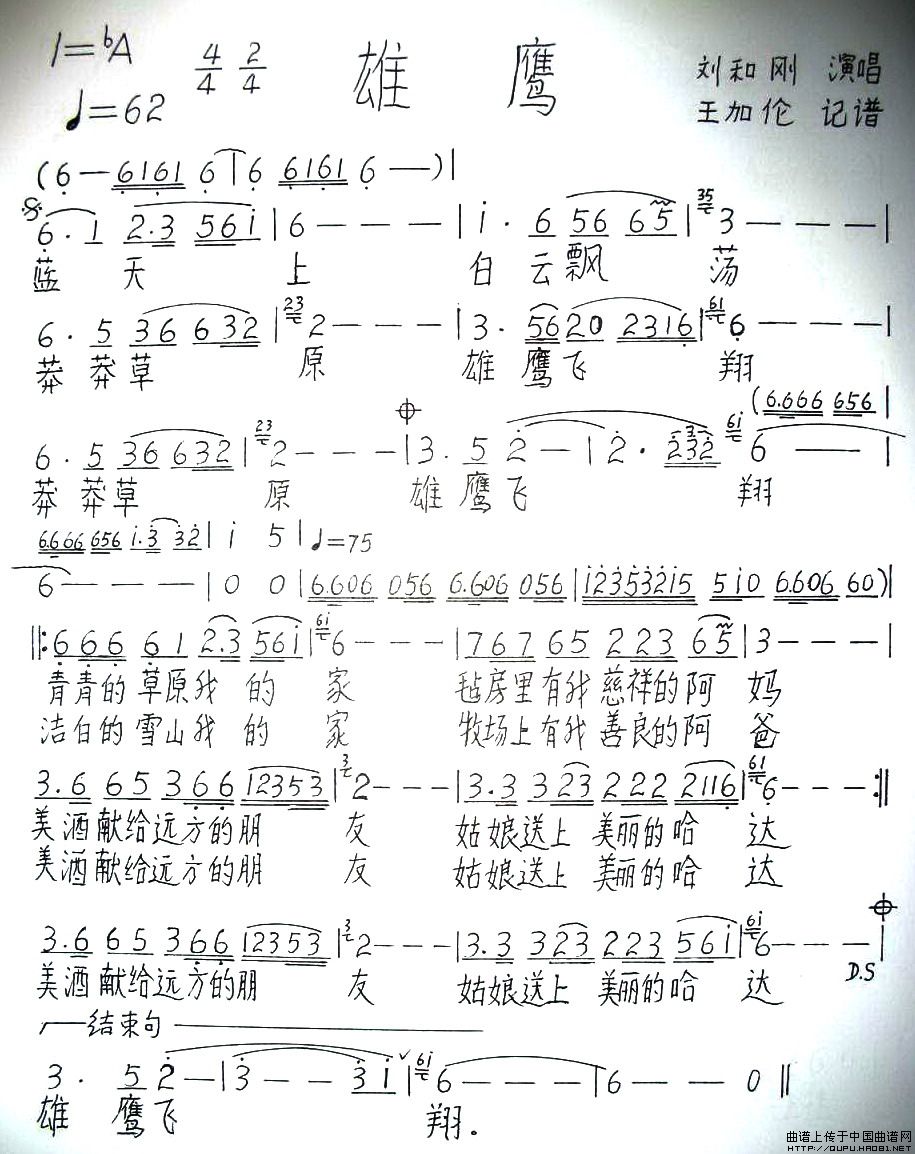 1=♭A 4/4 2/4 雄鹰 刘和刚 演唱
♩=62 王加伦 记谱
(6 — 6161 6 | 6 6161 6 —)|
6· 1 2·3 561 | 6 — — — | 1· 6 56 65 | 35 3 — — — |
蓝 天 上 白 云 飘 荡
6· 5 36 632 | 23 2 — — — | 3· 5620 2316 | 61 6 — — — |
莽 莽 草 原 雄 鹰 飞 翔
(6.666 656 |
6· 5 36 632 | 23 2 — — — | 3· 5 2 — | 2· 232 61 6 — — |
莽 莽 草 原 雄 鹰 飞 翔
6.666 656 1·3 32 | 1 5 | ♩=75
6 — — — | 0 0 | 6.606 056 6.606 056 | 12353215 510 6.606 60)|
‖: 666 61 2·3 561 | 61 6 — — — | 767 65 223 65 | 3 — — — |
青青的 草原我 的 家 毡房里有我 慈祥的阿 妈
洁白的 雪山我 的 家 牧场上有我 善良的阿 爸
3·6 65 366 12353 | 3 2 — — — | 3·3 323 222 2116 | 61 6 — — — :‖
美酒献给远方的朋 友 姑娘送上 美丽的哈 达
美酒献给远方的朋 友 姑娘送上 美丽的哈 达
3·6 65 366 12353 | 3 2 — — — | 3·3 323 223 561 | 61 6 — — — |
美酒献给远方的朋 友 姑娘送上 美丽的哈 达 D.S
结束句
3· 5 2 — | 3 — — 31 | 61 6 — — — | 6 — — 0 ‖
雄 鹰 飞 翔.
曲谱上传于中国曲谱网
HTTP://QUPU.HAO81.NET